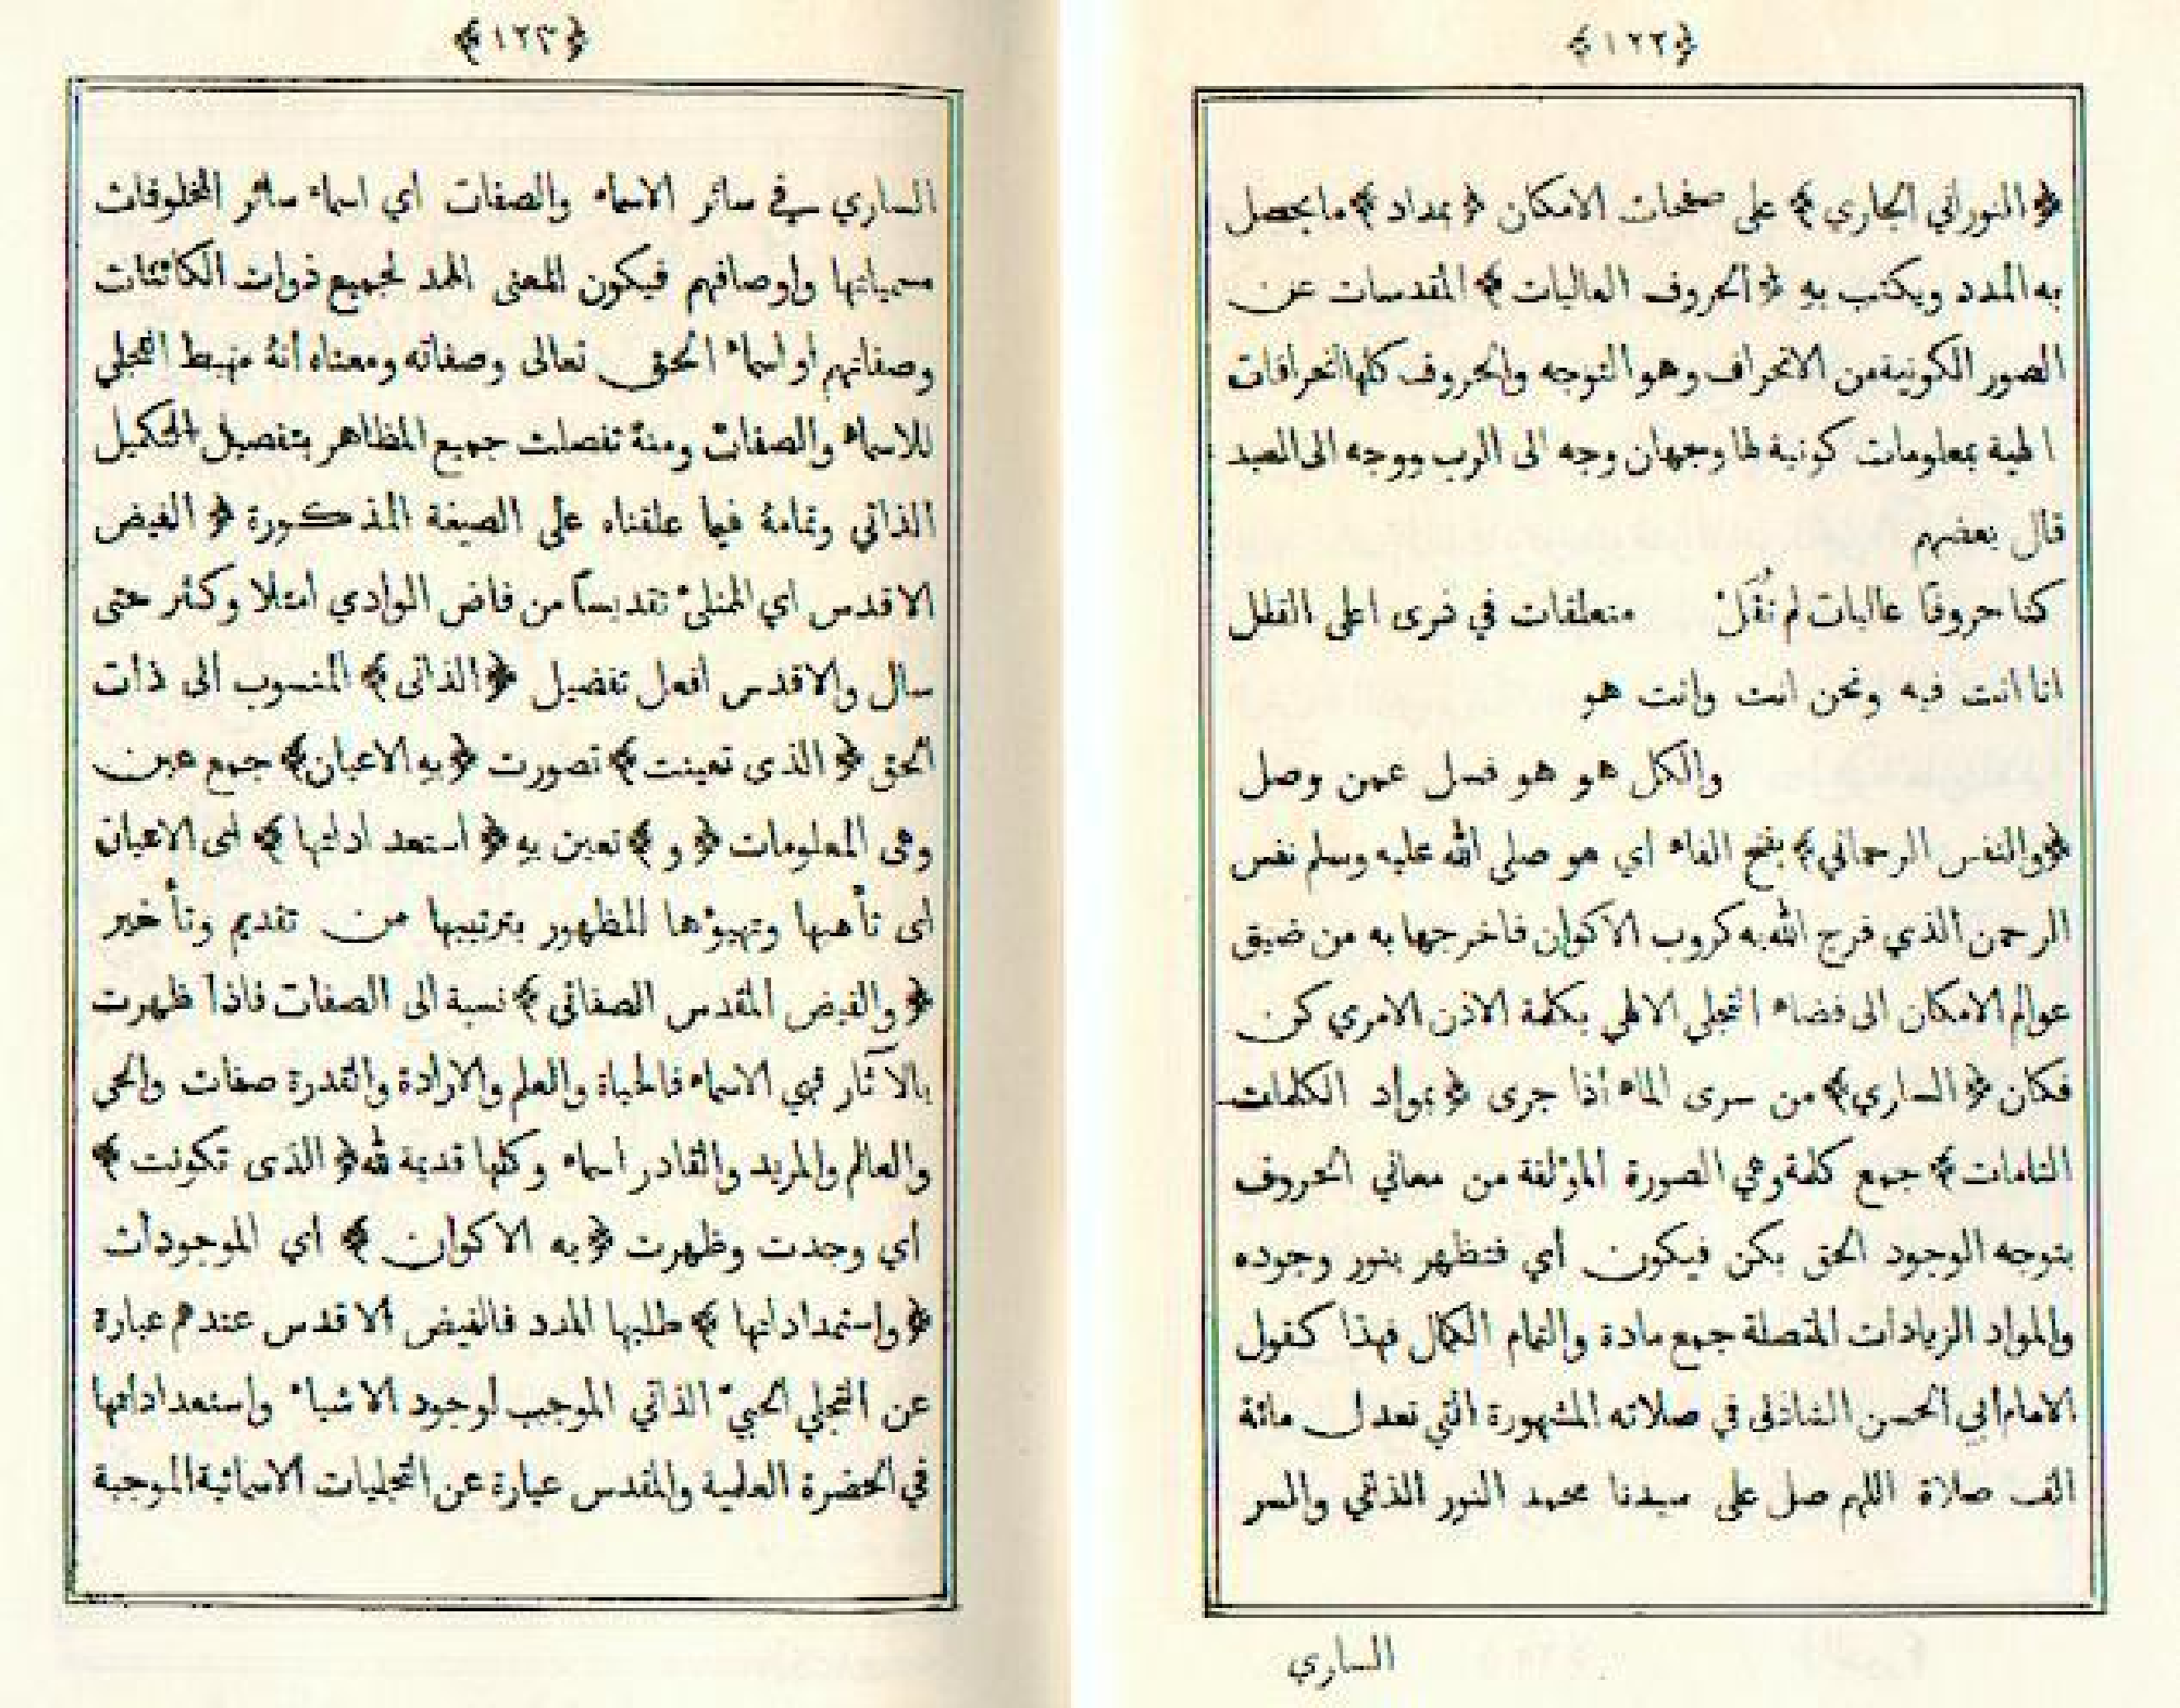 ﴿١٢٢﴾
﴿ النوراني الجاري ﴾ على صفحات الامكان ﴿ بمداد ﴾ ما يحصل
به المدد ويكتب به ﴿ الحروف العاليات ﴾ المقدسات عن
الصور الكونية من الانحراف وهو التوجه والحروف كلها انحرافات
الهية بمعلومات كونية لها وجهان وجه الى الرب ووجه الى العبد
قال بعضهم
كنا حروفًا عاليات لم نُقَلْ متعلقات في ذرى اعلى القلل
انا انت فيه ونحن انت وانت هو
والكل هو هو فسل عمن وصل
﴿ والنفس الرحماني ﴾ بفتح الفاء اي هو صلى الله عليه وسلم نفس
الرحمن الذي فرج الله به كروب الاكوان فاخرجها به من ضيق
عوالم الامكان الى فضاء التجلي الالهي بكلمة الاذن الامري كن
فكان ﴿ الساري ﴾ من سرى الماء اذا جرى ﴿ بمواد الكلمات
التامات ﴾ جمع كلمة وهي الصورة المؤلفة من معاني الحروف
بتوجه الوجود الحق بكن فيكون أي فتظهر بنور وجوده
والمواد الزيادات المتصلة جمع مادة والتمام الكمال فهذا كقول
الامام ابي الحسن الشاذلى في صلاته المشهورة التي تعدل مائة
الف صلاة اللهم صل على سيدنا محمد النور الذاتي والسر
الساري
﴿١٢٣﴾
الساري في سائر الاسماء والصفات اي اسماء سائر المخلوقات
مسمياتها واوصافهم فيكون المعنى الممد لجميع ذوات الكائنات
وصفاتهم او اسماء الحق تعالى وصفاته ومعناه انهُ مهبط التجلي
للاسماء والصفات ومنهُ تفصلت جميع المظاهر بتفصيل الحكيل
الذاتي وتمامهُ فيما علقناه على الصيغة المذكورة ﴿ الفيض
الاقدس اي الممتلئ تقديساً من فاض الوادي امتلا وكثر حتى
سال والاقدس افعل تفضيل ﴿ الذاتى ﴾ المنسوب الى ذات
الحق ﴿ الذى تعينت ﴾ تصورت ﴿ به الاعيان ﴾ جمع عين
وهى المعلومات ﴿ و ﴾ تعين به ﴿ استعداداتها ﴾ اى الاعيان
اى تأهبها وتهيؤها للظهور بترتيبها من تقديم وتأخير
﴿ والفيض المقدس الصفاتي ﴾ نسبة الى الصفات فاذا ظهرت
بالآثار فهي الاسماء فالحياة والعلم والارادة والقدرة صفات والحي
والعالم والمريد والقادر اسماء وكلها قديمة لله ﴿ الذى تكونت ﴾
اي وجدت وظهرت ﴿ به الاكوان ﴾ اي الموجودات
﴿ واستمداداتها ﴾ طلبها المدد فالفيض الاقدس عندهم عبارة
عن التجلي الحبيّ الذاتي الموجب لوجود الاشياء واستعداداتها
في الحضرة العلمية والمقدس عبارة عن التجليات الاسمائية الموجبة